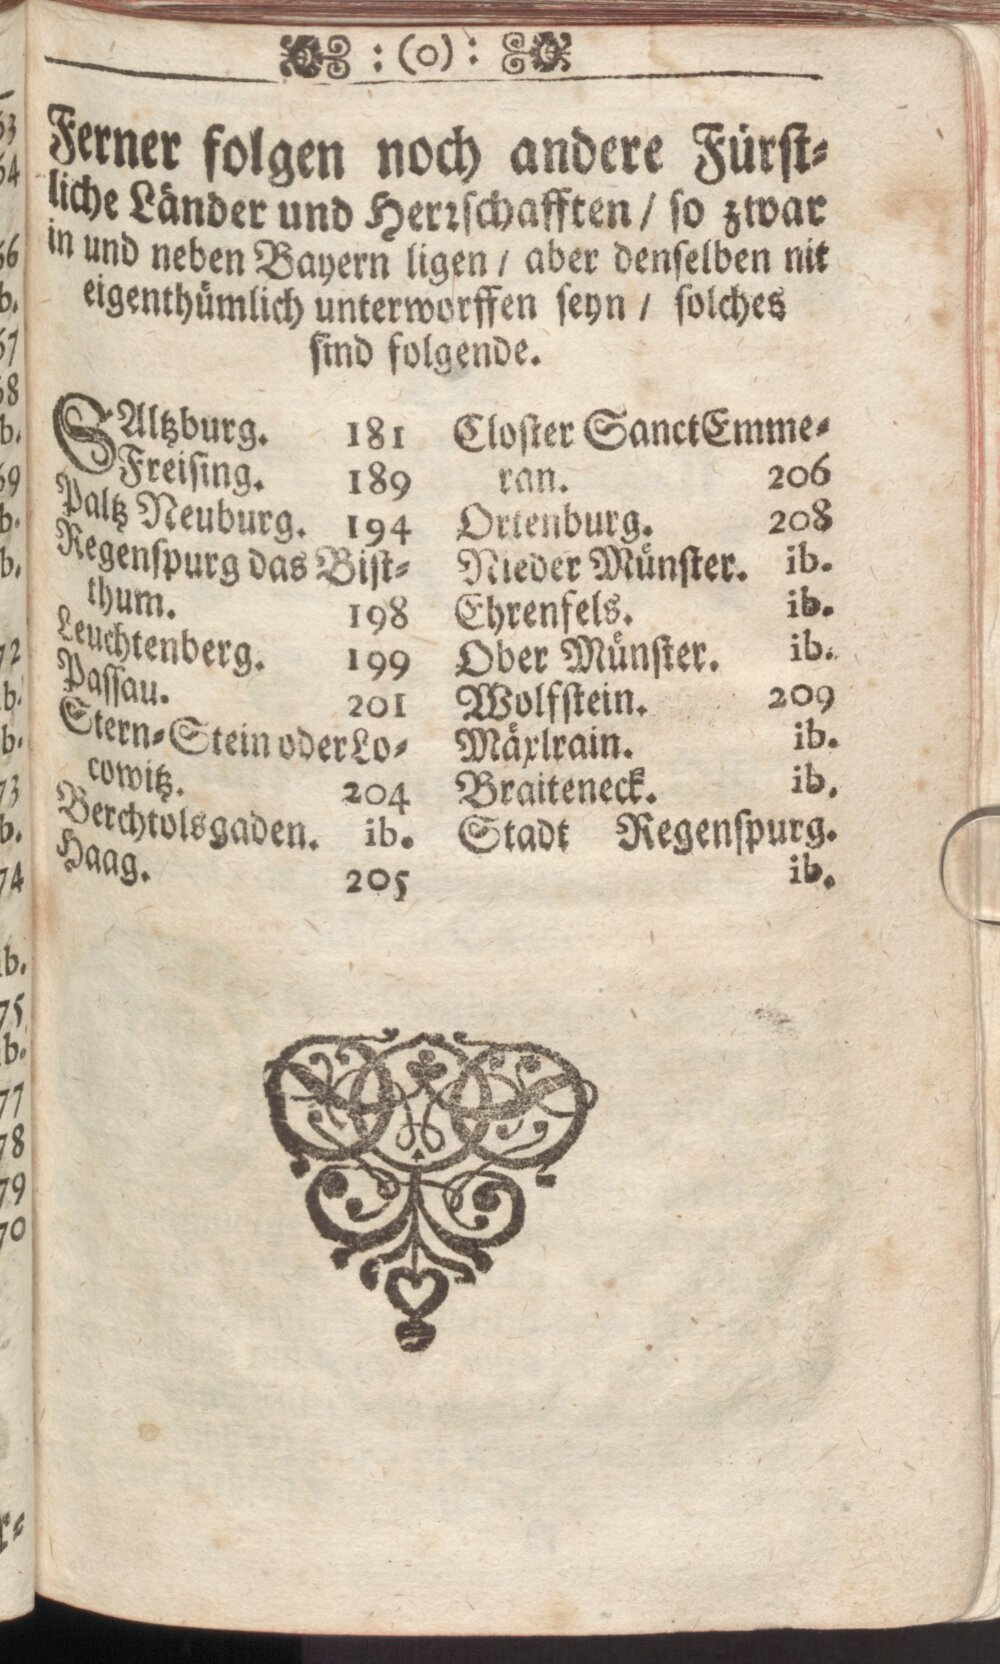 :(o):
Ferner folgen noch andere Fürst-
liche Länder und Herrschafften / so zwar
in und neben Bayern ligen / aber denselben nit
eigenthümlich unterworffen seyn / solches
sind folgende.
SAltzburg. 181
Freising. 189
Paltz Neuburg. 194
Regenspurg das Bist-
thum. 198
Leuchtenberg. 199
Passau. 201
Stern-Stein oder Lo-
cowitz. 204
Berchtolsgaden. ib.
Haag. 205
Closter Sanct Emme-
ran. 206
Ortenburg. 208
Nieder Münster. ib.
Ehrenfels. ib.
Ober Münster. ib.
Wolfstein. 209
Mäxlrain. ib.
Braiteneck. ib.
Stadt Regenspurg.
ib.